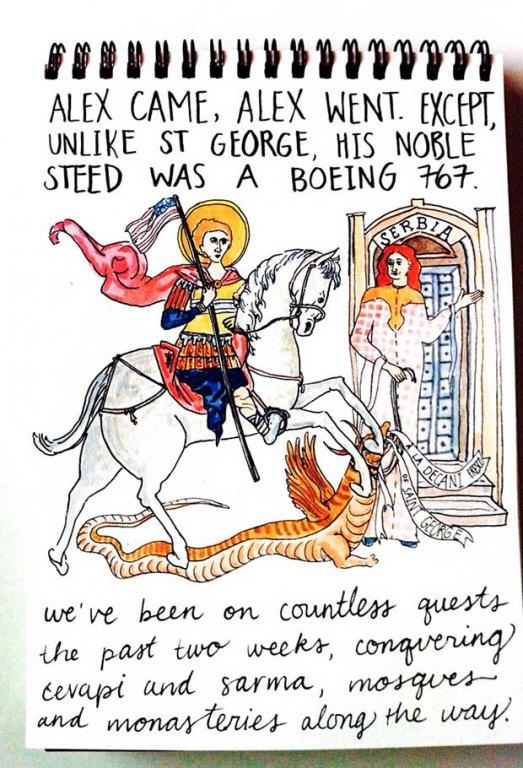 ALEX CAME, ALEX WENT. EXCEPT,
UNLIKE ST GEORGE, HIS NOBLE
STEED WAS A BOEING 767.
SERBIA
A LA DECANI FRESCO
OF SAINT GEORGE
we've been on countless quests
the past two weeks, conquering
ćevapi and sarma, mosques
and monasteries along the way.